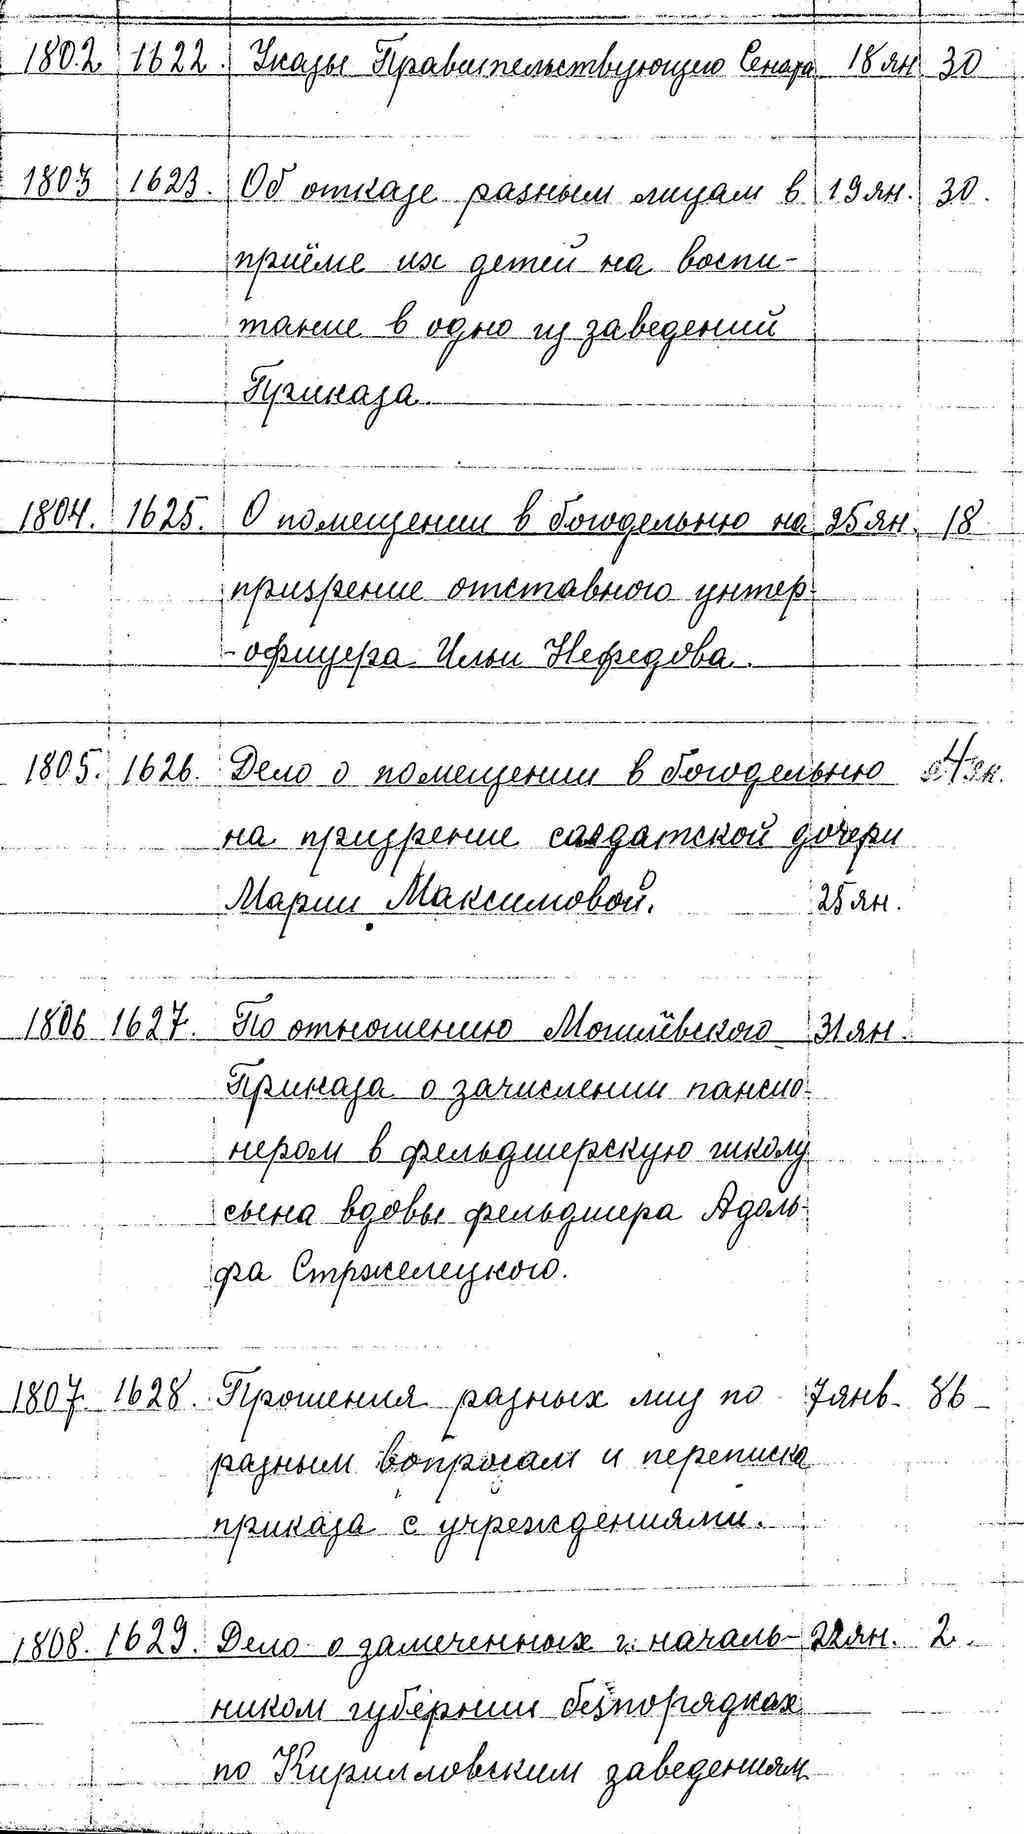 1802 1622. Указы Правительствующего Сената 18 ян 30
1803 1623. Об отказе разным лицам в 19 ян. 30.
приёме их детей на воспи-
тание в одно из заведений
Приказа.
1804. 1625. О помещении в богодельню на 25 ян. 18
призрение отставного унтер-
-офицера Ильи Нефедова.
1805. 1626. Дело о помещении в богодельню
на призрение салдатской дочери
Марии Максимовой. 25 ян.
1806 1627. По отношению Могилёвского 31 ян.
Приказа о зачислении пансио-
нером в фельдшерскую школу
сына вдовы фельдшера Адоль-
фа Стржелецкого.
1807. 1628. Прошения разных лиц по 7 янв. 86
разным вопросам и переписка
приказа с учреждениями.
1808. 1629. Дело о замеченных г. началь- 22 ян. 2.
ником губернии безпорядках
по Кирилловским заведениям